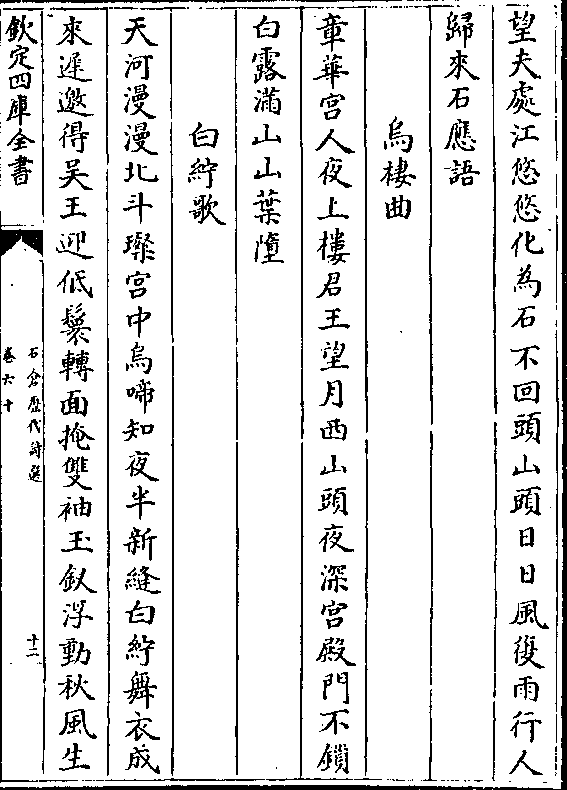 望夫處江悠悠化為石不回頭山頭日日風復雨行人
歸來石應語
烏棲曲
章華宫人夜上樓君王望月西山頭夜深宫殿門不鎖
白露滿山山葉墮
白紵歌
天河漫漫北斗璨宫中烏啼知夜半新縫白紵舞衣成
來遲邀得吴王迎低鬟轉面掩雙袖玉釵浮動秋風生
欽定四庫全書
石倉歷代詩選
卷六十
十二